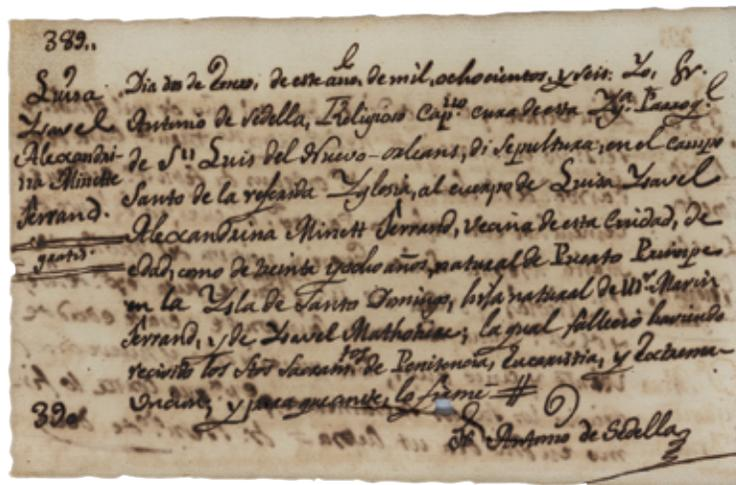 389.,
Luisa
Ysavel
Alexandri-
na Minette
Ferrand.
gratis.
Dia dos de Enero, de este año, de mil, ochocientos, y seis: Yo, Fr.
Antonio de Sedella, Religioso Cap.no cura de esta Yg.a Parroq.l
de S.n Luis del Nuevo-orleans, di sepultura, en el campo
Santo de la referida Yglesia, al cuerpo de Luisa Ysavel
Alexandrina Minett Ferrand, vecina de esta Ciudad, de
edad, como de veinte y ocho años, natural de Puerto Principe
en la Ysla de Santo Domingo, hija natural de M.r Marin
Ferrand, y de Ysavel; la qual fallecio haviendo
recivido los Stos Sacram.tos de Penitencia, Eucaristia, y Extrema-
Uncion; y para que conste, lo firme #
Fr. Antonio de Sedella
390